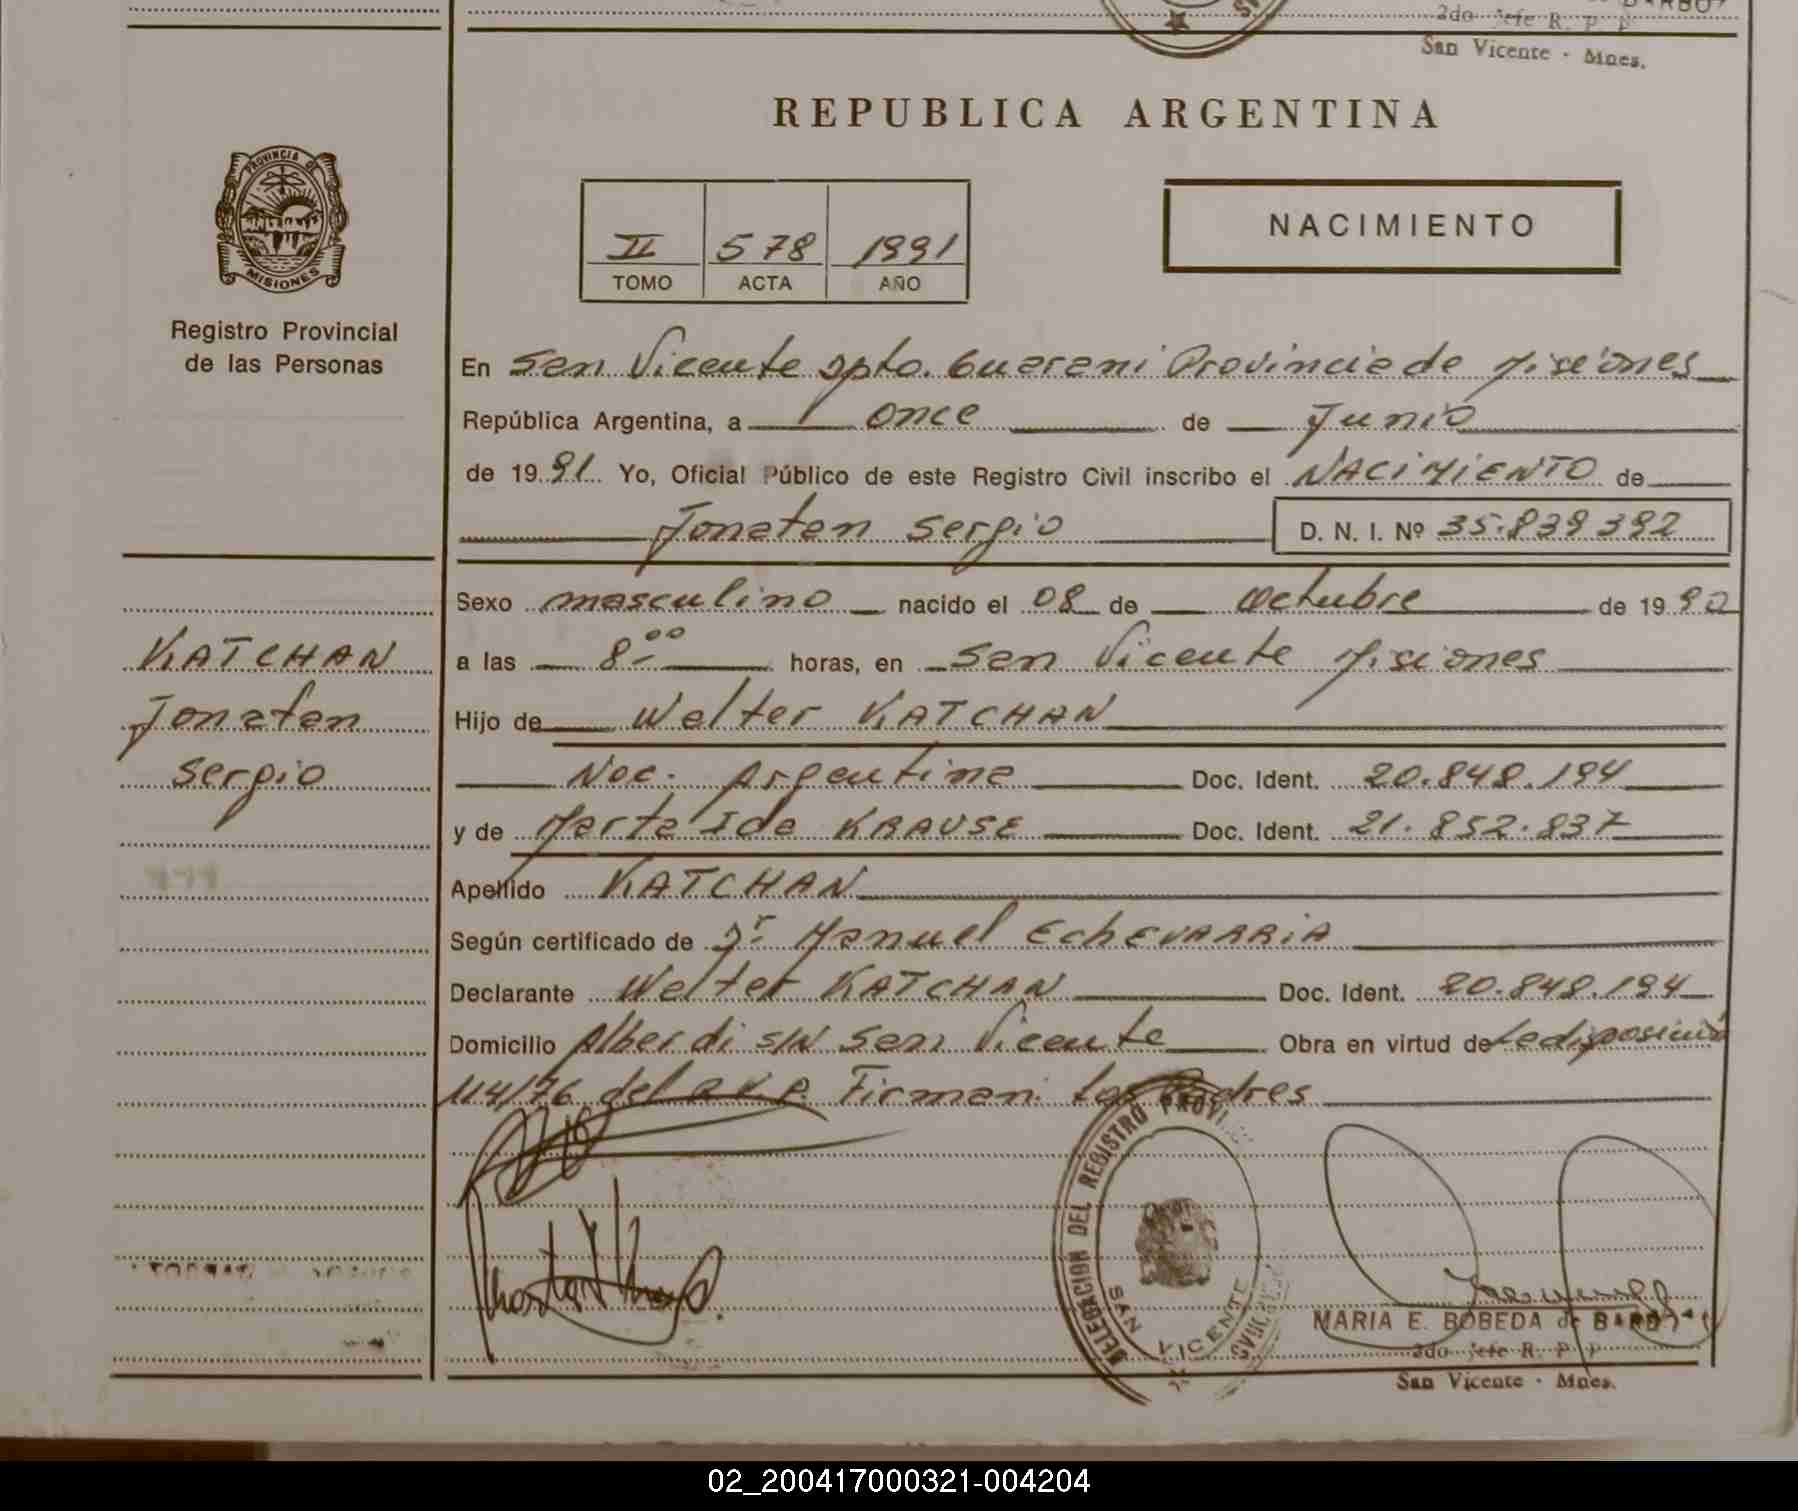 2do Jefe R. P. P.
San Vicente - Mnes.
REPUBLICA ARGENTINA
PROVINCIA DE
MISIONES
II 578 1991
TOMO ACTA AÑO
NACIMIENTO
Registro Provincial
de las Personas
En San Vicente Dpto. Guarani Provincia de Misiones
República Argentina, a once de Junio
de 1991 Yo, Oficial Público de este Registro Civil inscribo el NACIMIENTO de
Jonatan Sergio D. N. I. Nº 35.839392
Sexo masculino nacido el 08 de octubre de 1990
KATCHAN
Jonatan
Sergio
a las 8.00 horas, en San Vicente Misiones
Hijo de Walter KATCHAN
Nac. Argentina Doc. Ident. 20.848.194
y de Marta Ida KRAUSE Doc. Ident. 21.852.837
Apellido KATCHAN
Según certificado de Dr. Manuel EchEVARRiA
Declarante Walter KATCHAN Doc. Ident. 20.848.194
Domicilio Alberdi s/N San Vicente Obra en virtud de La disposición
114/76 del R.P.P. Firman: Los Padres
DELEGACION DEL REGISTRO PROVI
SAN VICENTE
MARIA E. BOBEDA de
2do Jefe R. P. P.
San Vicente - Mnes.
02_200417000321-004204